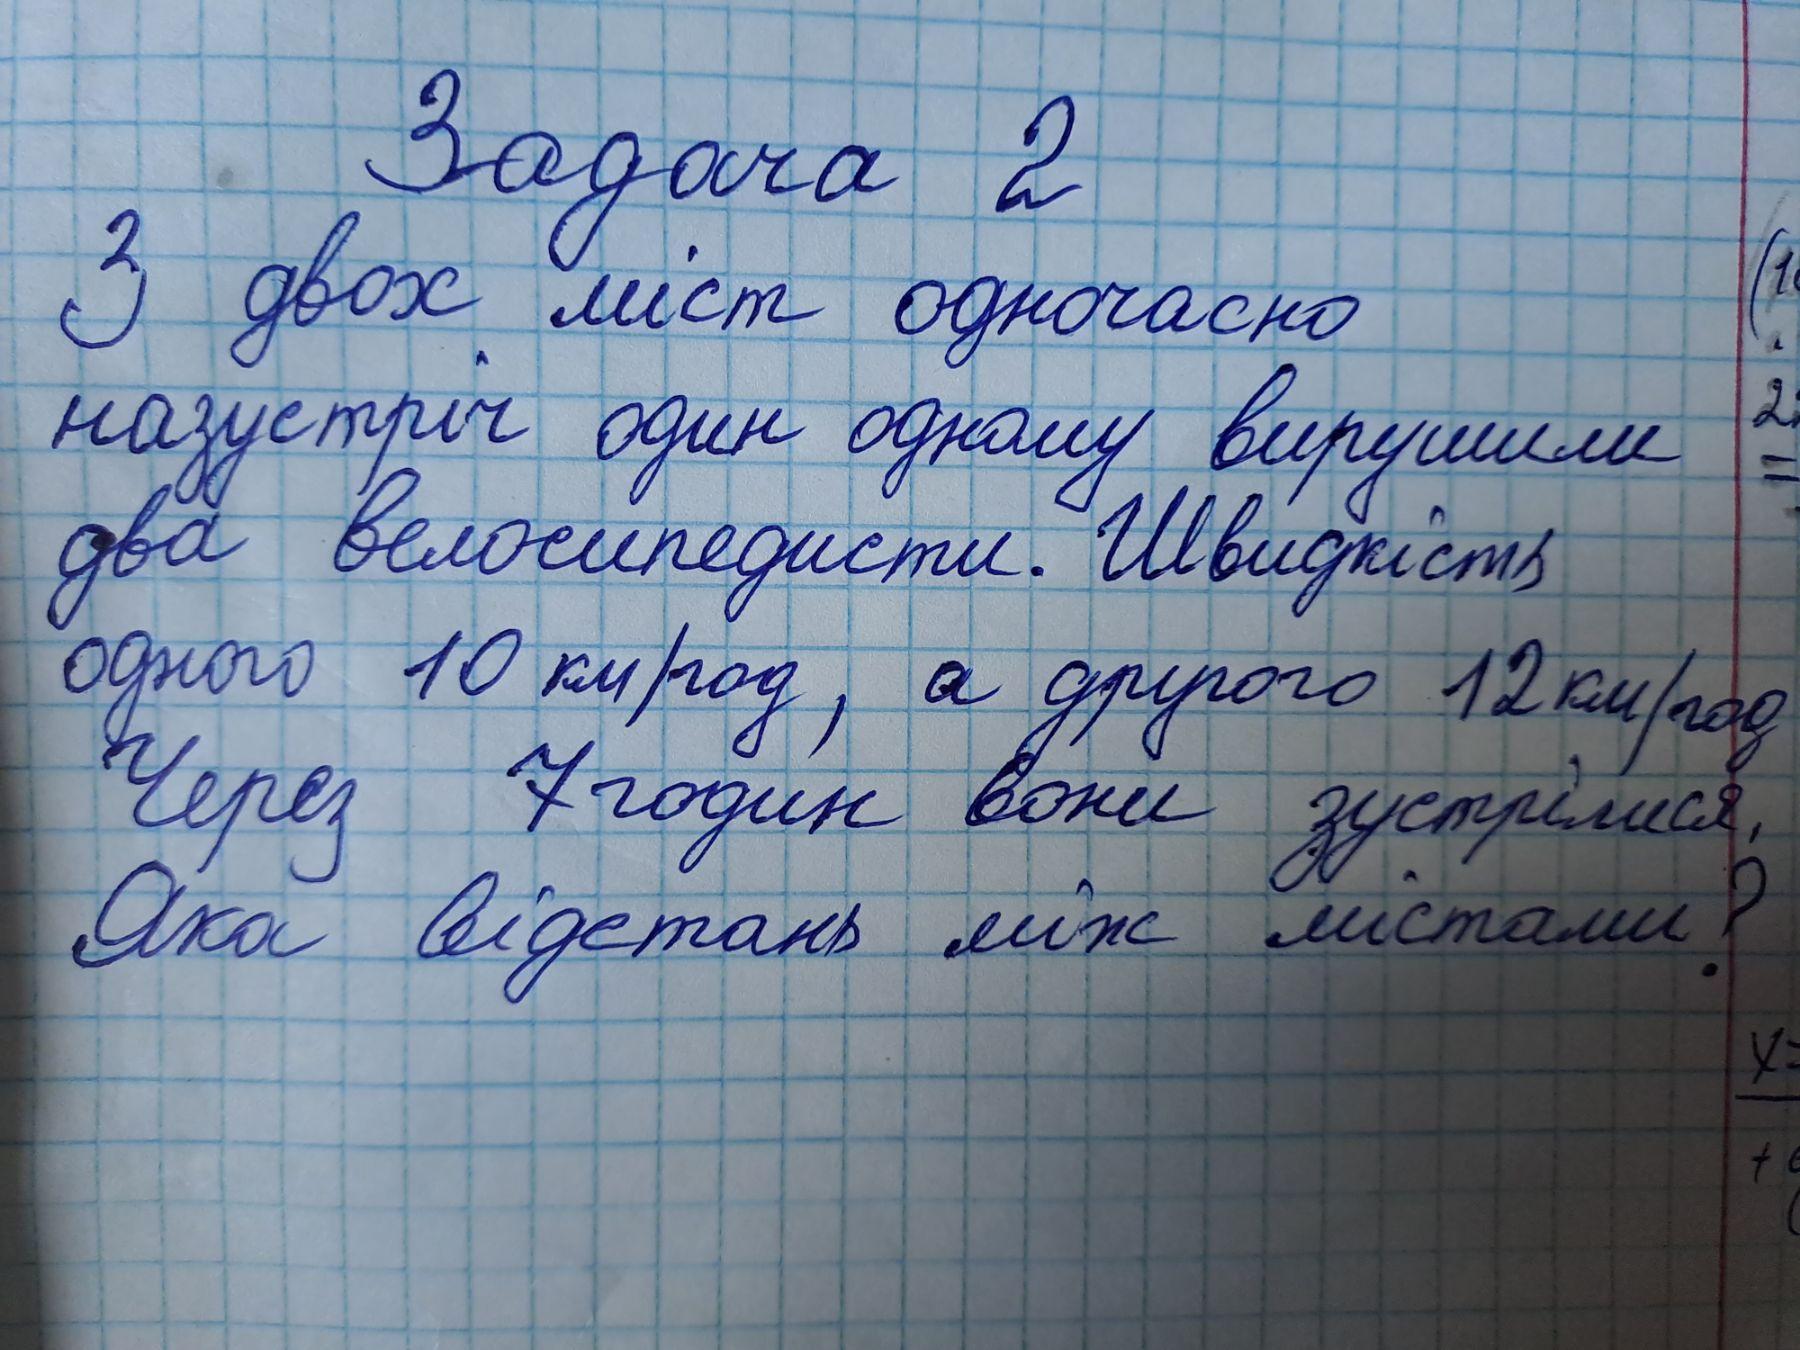 Задача 2
З двох міст одночасно
назустріч один одному вирушили
два велосипедисти. Швидкість
одного 10 км/год, а другого 12 км/год
Через 7 годин вони зустрілися.
Яка відстань між містами?